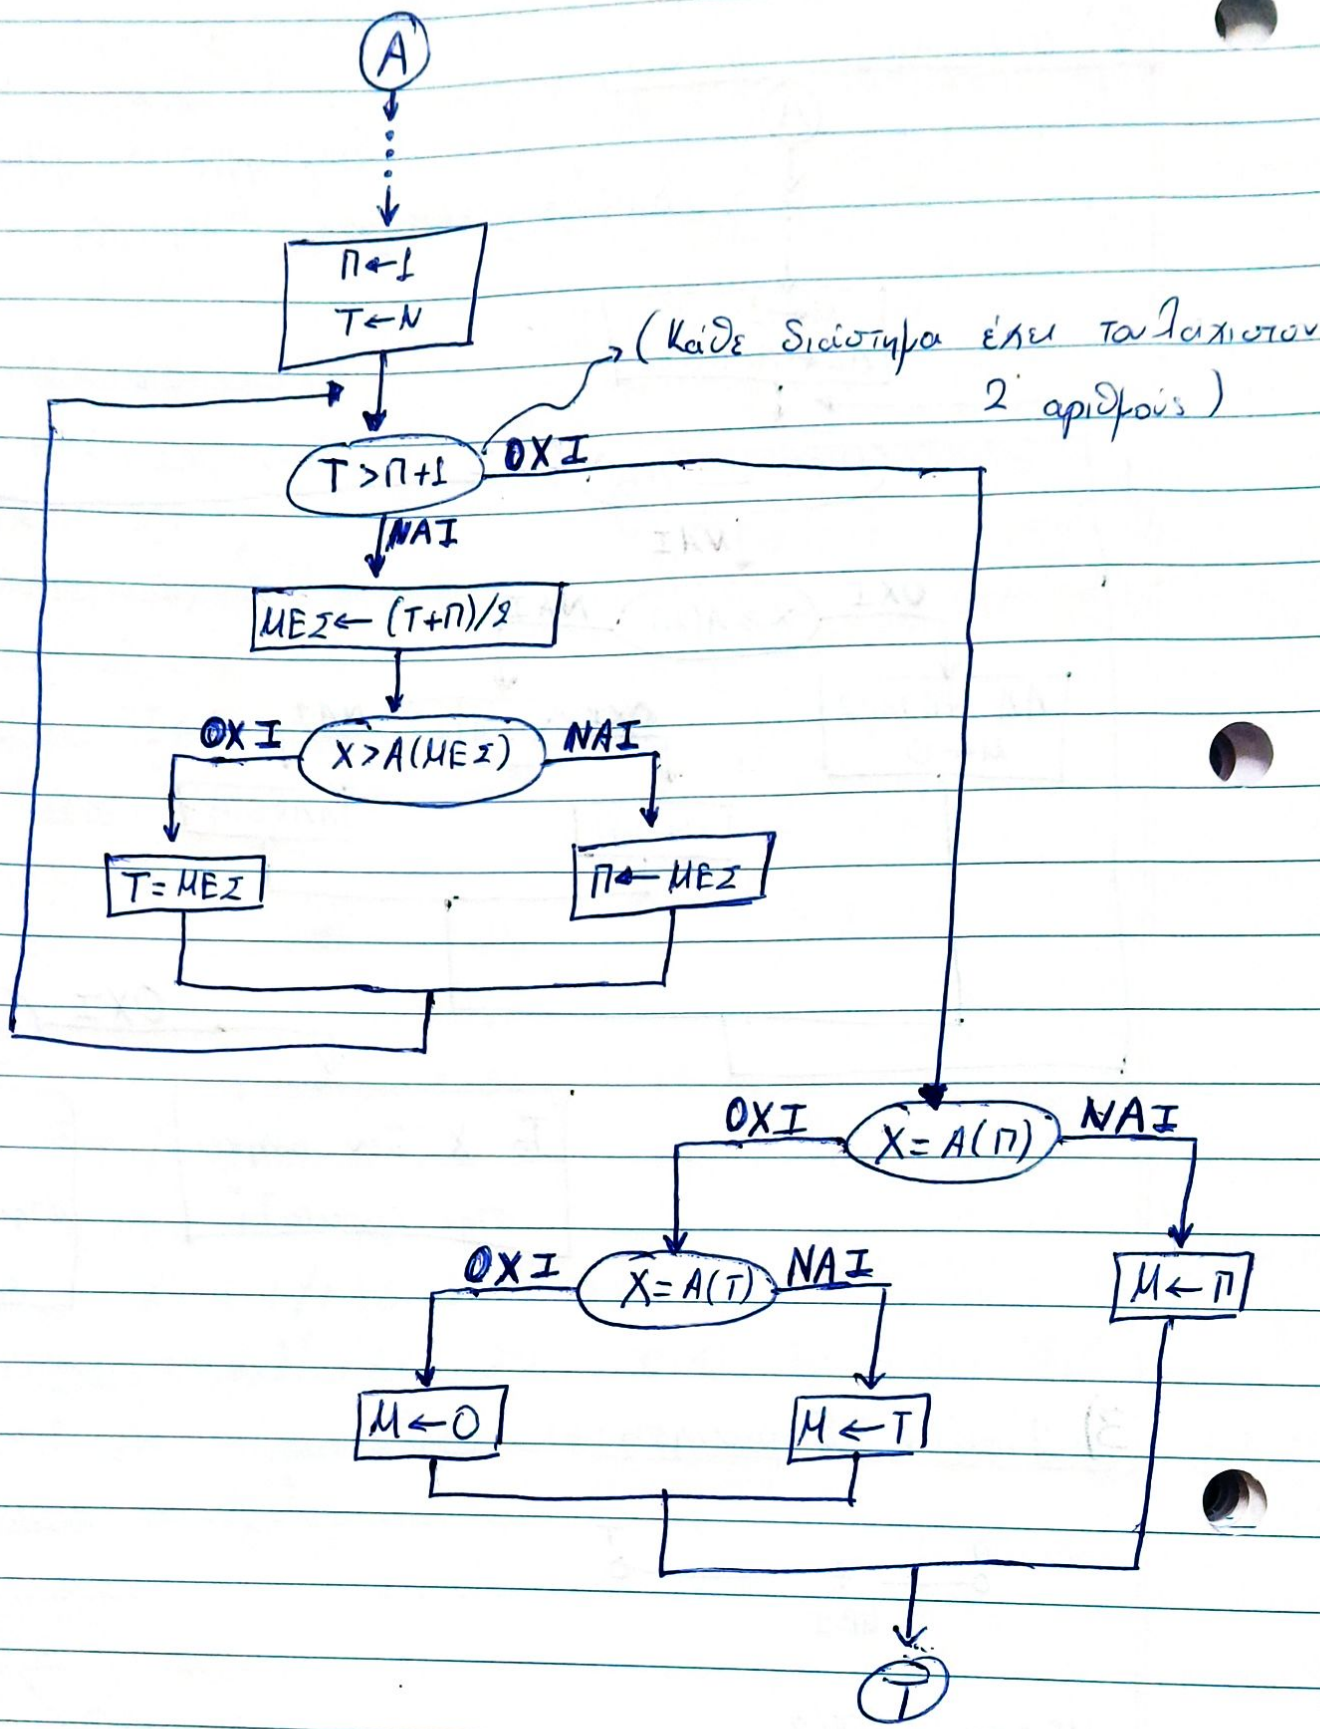 Α
Π←1
Τ←Ν
(Κάθε διάστημα έχει τουλάχιστον
2 αριθμούς)
Τ>Π+1
ΟΧΙ
ΝΑΙ
ΜΕΣ←(Τ+Π)/2
ΟΧΙ
Χ>Α(ΜΕΣ)
ΝΑΙ
Τ=ΜΕΣ
Π←ΜΕΣ
ΟΧΙ
Χ=Α(Π)
ΝΑΙ
ΟΧΙ
Χ=Α(Τ)
ΝΑΙ
Μ←Π
Μ←0
Μ←Τ
Τ